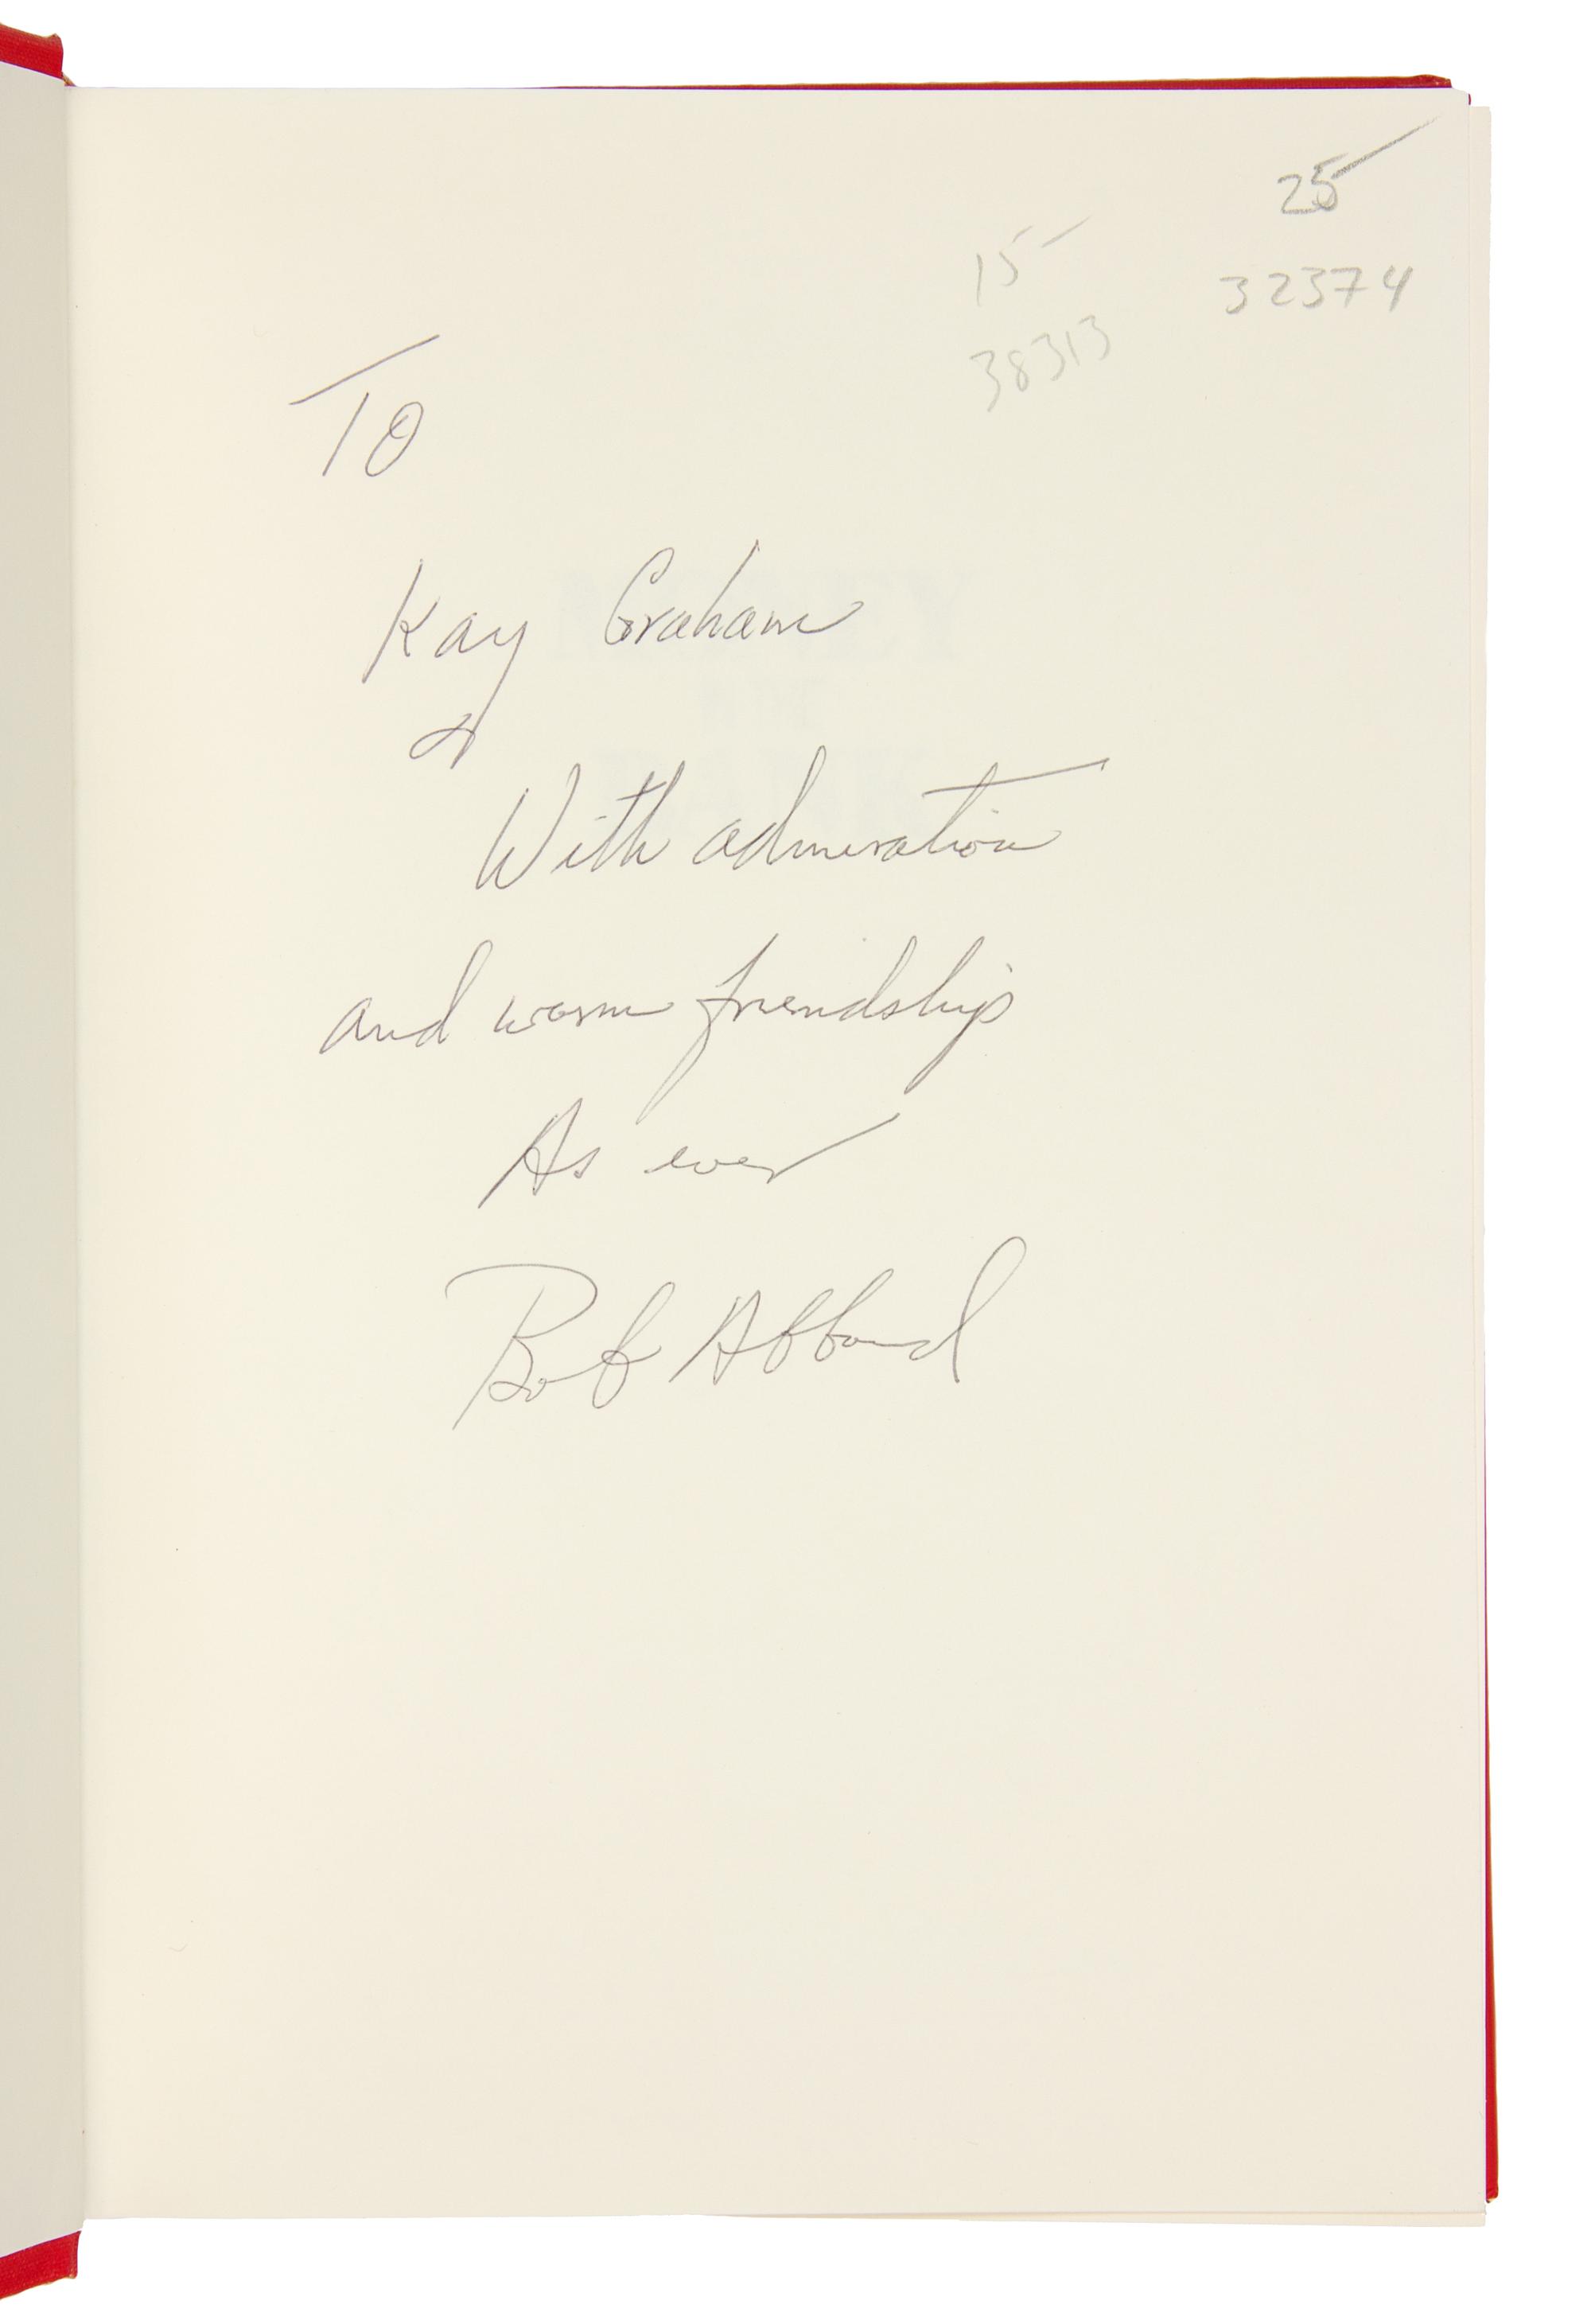 25
32374
15
38313
To
Kay Graham
With admiration
and warm friendship
As ever
Bob Abboud